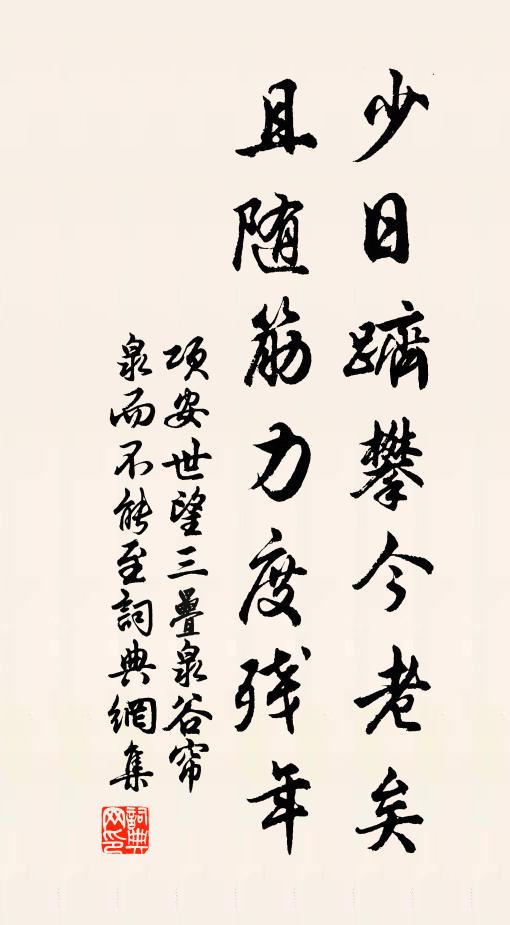 少日躋攀今老矣
且随筋力度残年
項安世望三疊泉谷帘
泉而不能至詞典網集
詞典
网印